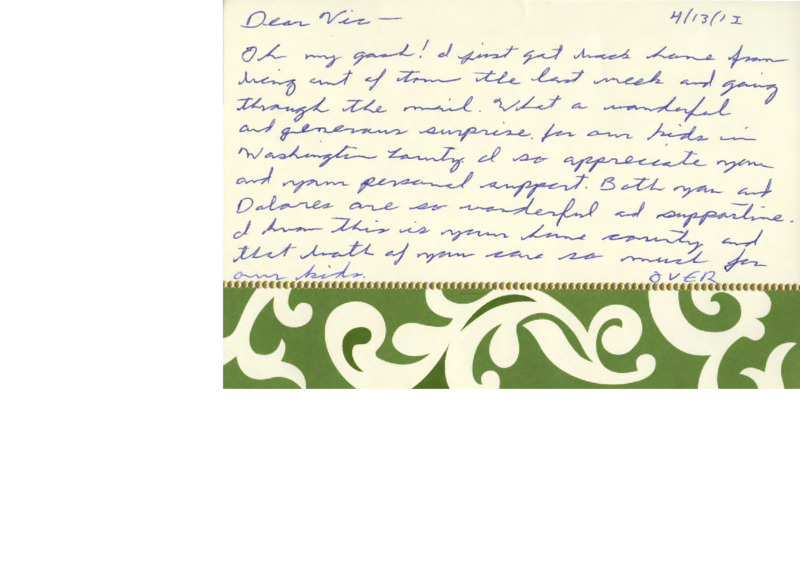 Dear Vic — 4/13/12
Oh my gosh! I just got back home from
being out of town the last week and going
through the mail. What a wonderful
and generous surprise for our kids in
Washington County. I so appreciate you
and your personal support. Both you and
Dolores are so wonderful ad supportive.
I know this is your home county and
that both of you care so much for
our kids. OVER